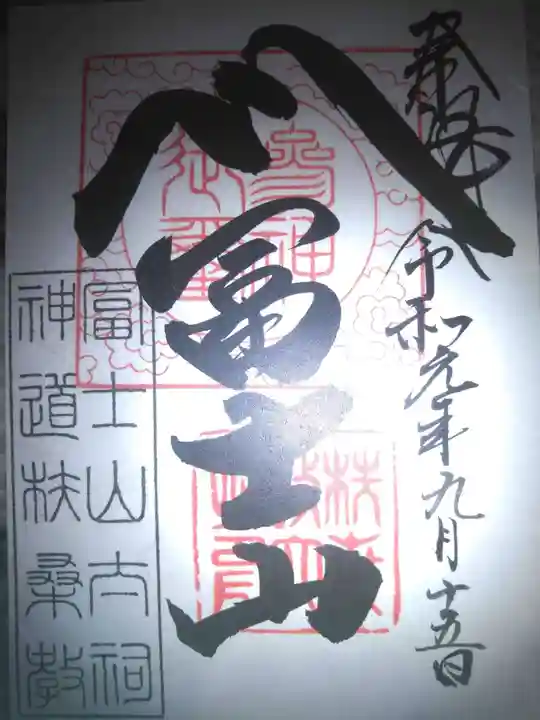 奉拝
令和元年九月十五日
冨士山
冨士山太祠
神道扶桑教